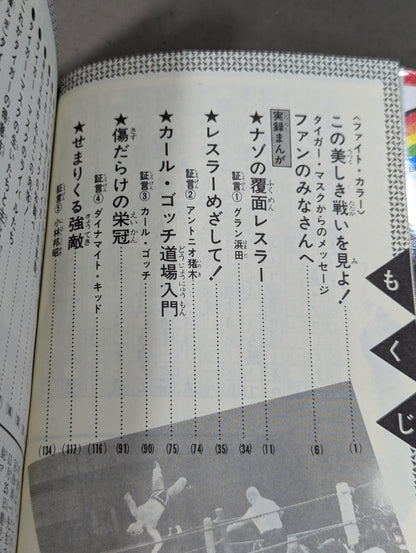 もくじ
〈ファイト・カラー〉
この美しき戦いを見よ！……(1)
タイガー・マスクからのメッセージ
ファンのみなさんへ……(6)
実録まんが
★ナゾの覆面レスラー……(11)
証言① グラン浜田……(34)
★レスラーめざして！……(35)
証言② アントニオ猪木……(74)
★カール・ゴッチ道場入門……(75)
証言③ カール・ゴッチ……(90)
★傷だらけの栄冠……(91)
証言④ ダイナマイト・キッド……(116)
★せまりくる強敵……(117)
証言⑤ 小林邦昭……(134)